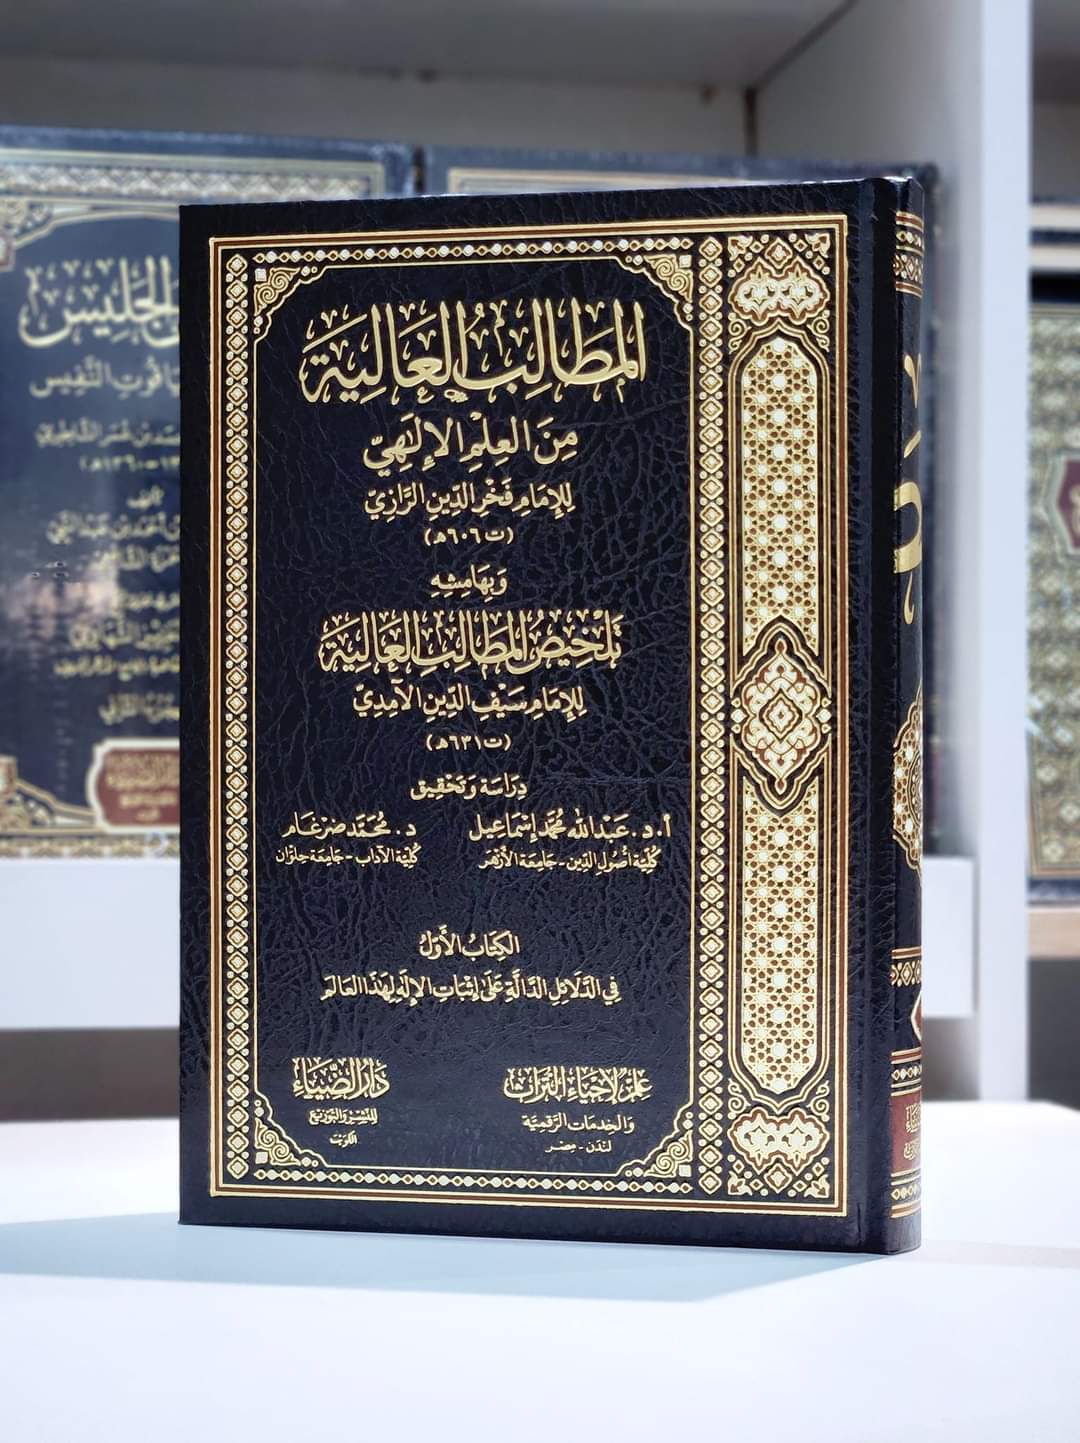 المَطَالِبُ العَالِيَة
مِنَ العِلْمِ الإِلٰهِيّ
لِلإِمَامِ فَخْرِ الدِّينِ الرَّازِيّ
(ت ٦٠٦هـ)
وَبِهَامِشِهِ
تَلْخِيصُ المَطَالِبِ العَالِيَة
لِلإِمَامِ سَيْفِ الدِّينِ الآمِدِيّ
(ت ٦٣١هـ)
دِرَاسَة وَتَحْقِيق
أ. د. عَبْدالله مُحَمَّد إِسْمَاعِيل
كُلِّيَة أُصُولِ الدِّين - جَامِعَة الأَزْهَر
د. مُحَمَّد ضرْغَام
كُلِّيَة الآدَاب - جَامِعَة حِلْوَان
الكِتَابُ الأَوَّلُ
فِي الدَّلَائِلِ الدَّالَّةِ عَلَى إِثْبَاتِ الإِلَهِ لِهَذَا العَالَم
عِلم لإحيَاء التُّرَاث
وَالخِدمَات الرَّقمِيَّة
لَندَن - مِصر
دَارُ الضِّيَاء
لِلنَّشْرِ وَالتَّوْزِيع
الكويت
الجَلِيس